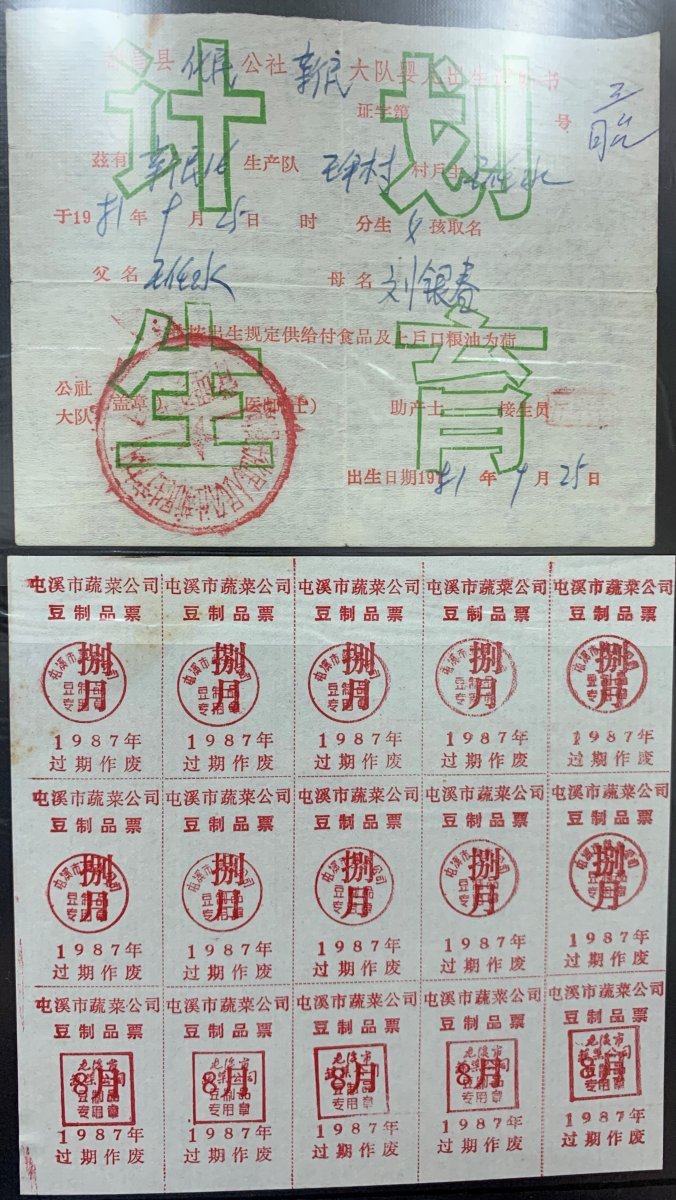 县 化民 公社 新民 大队婴儿出生证明书
计划
证字第 号
兹有 新民 生产队 村 村戶主 王任水
于1981年9月25日 时 分生 女 孩取名
父名 王任水 母名 刘银春
按出生规定供给付食品及上戶口粮油为荷
生育
公社
大队 (盖章) 医师(士) 助产士 接生员
出生日期1981年9月25日
屯溪市蔬菜公司 屯溪市蔬菜公司 屯溪市蔬菜公司 屯溪市蔬菜公司 屯溪市蔬菜公司
豆制品票 豆制品票 豆制品票 豆制品票 豆制品票
捌月 捌月 捌月 捌月 捌月
1987年 1987年 1987年 1987年 1987年
过期作废 过期作废 过期作废 过期作废 过期作废
屯溪市蔬菜公司 屯溪市蔬菜公司 屯溪市蔬菜公司 屯溪市蔬菜公司 屯溪市蔬菜公司
豆制品票 豆制品票 豆制品票 豆制品票 豆制品票
捌月 捌月 捌月 捌月 捌月
1987年 1987年 1987年 1987年 1987年
过期作废 过期作废 过期作废 过期作废 过期作废
屯溪市蔬菜公司 屯溪市蔬菜公司 屯溪市蔬菜公司 屯溪市蔬菜公司 屯溪市蔬菜公司
豆制品票 豆制品票 豆制品票 豆制品票 豆制品票
屯溪市 屯溪市 屯溪市 屯溪市 屯溪市
蔬菜公司 蔬菜公司 蔬菜公司 蔬菜公司 蔬菜公司
8月 8月 8月 8月 8月
豆制品 豆制品 豆制品 豆制品 豆制品
专用章 专用章 专用章 专用章 专用章
1987年 1987年 1987年 1987年 1987年
过期作废 过期作废 过期作废 过期作废 过期作废